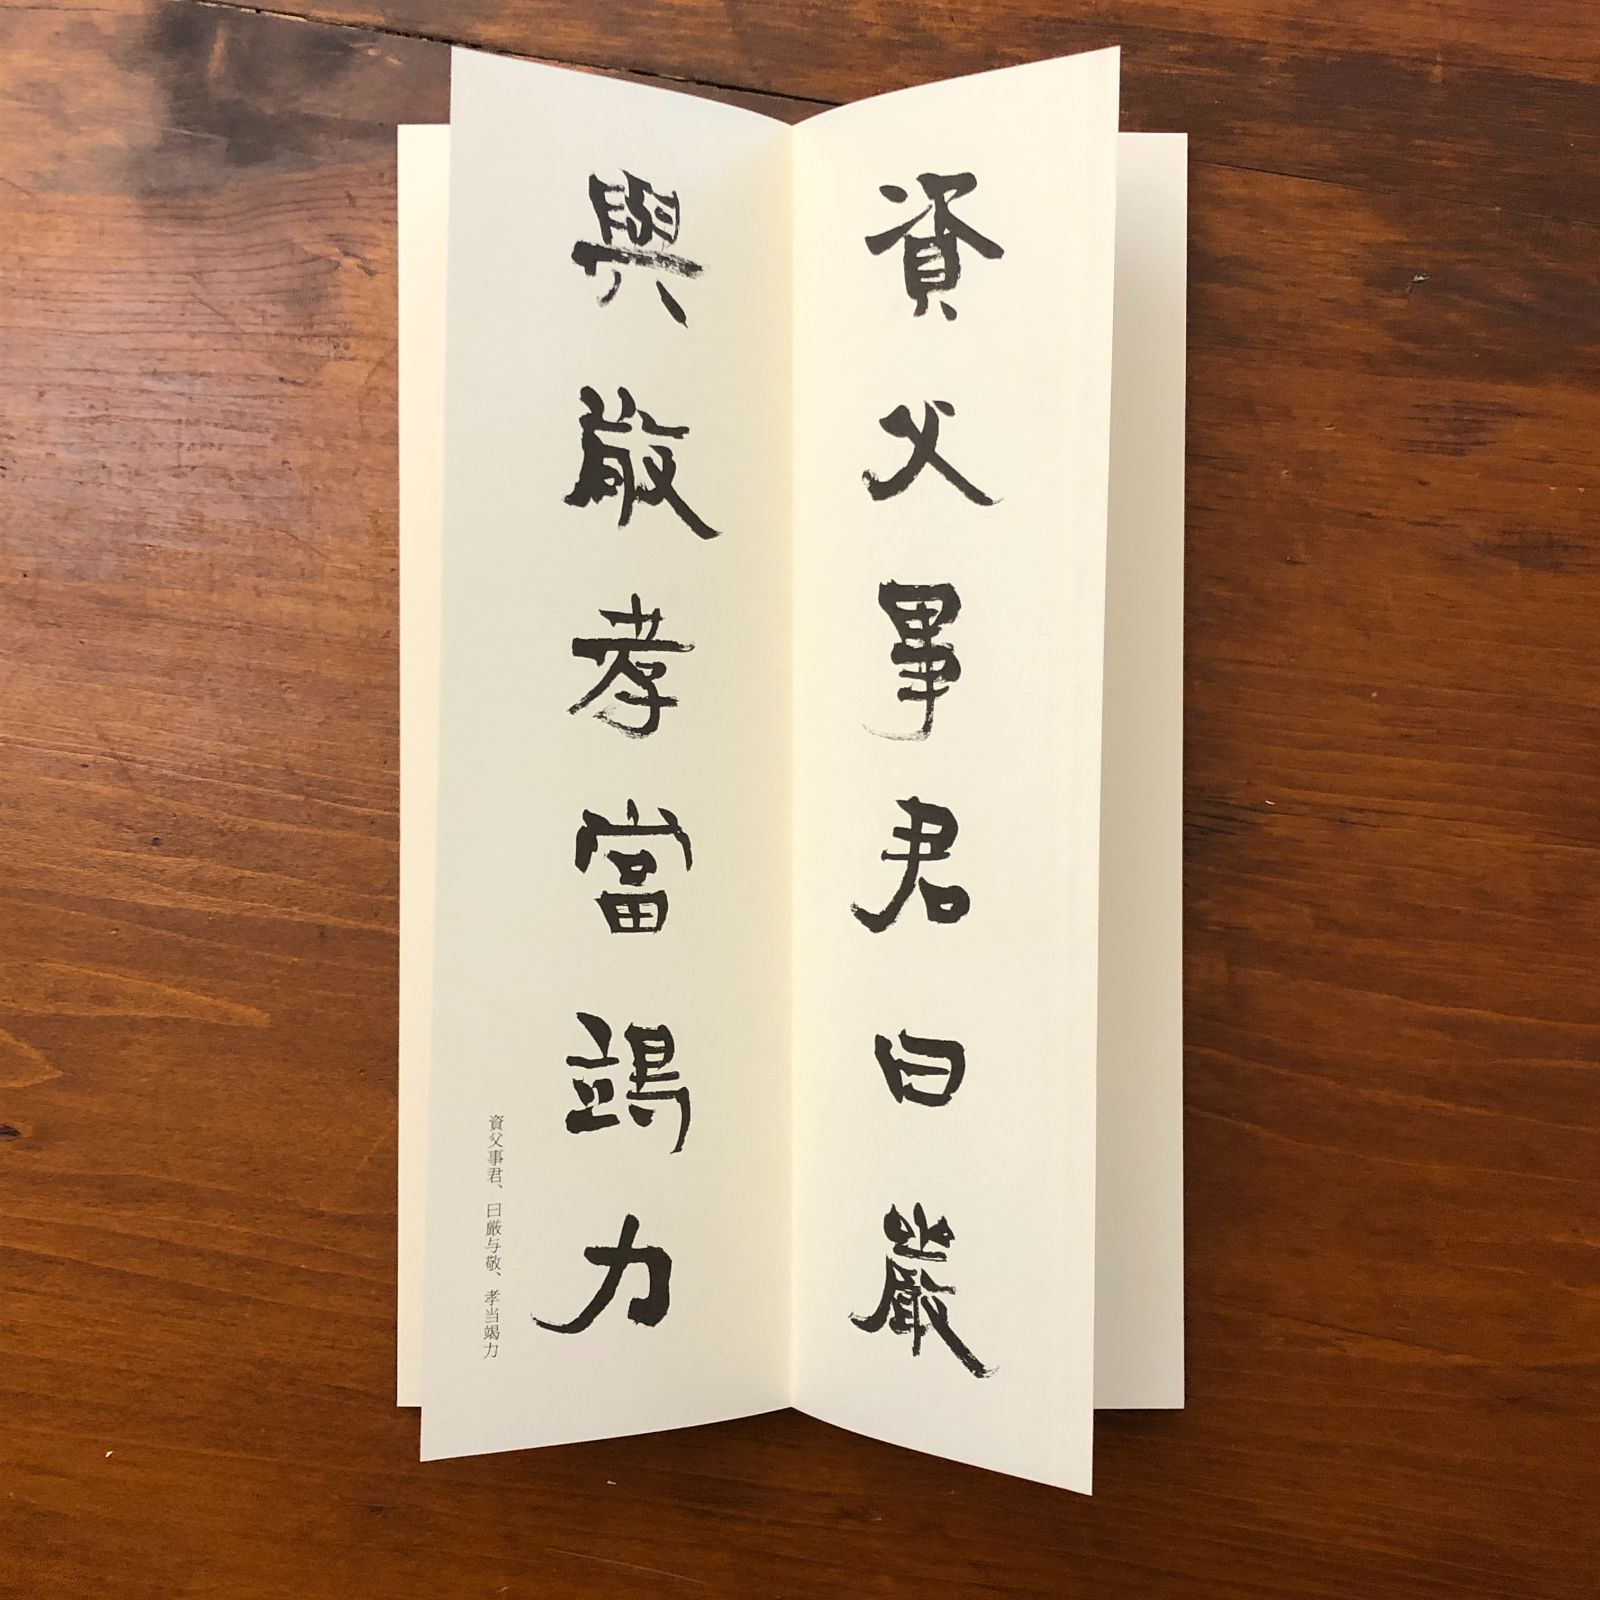 資父事君曰嚴
與敬孝當竭力
資父事君、曰厳与敬、孝当竭力